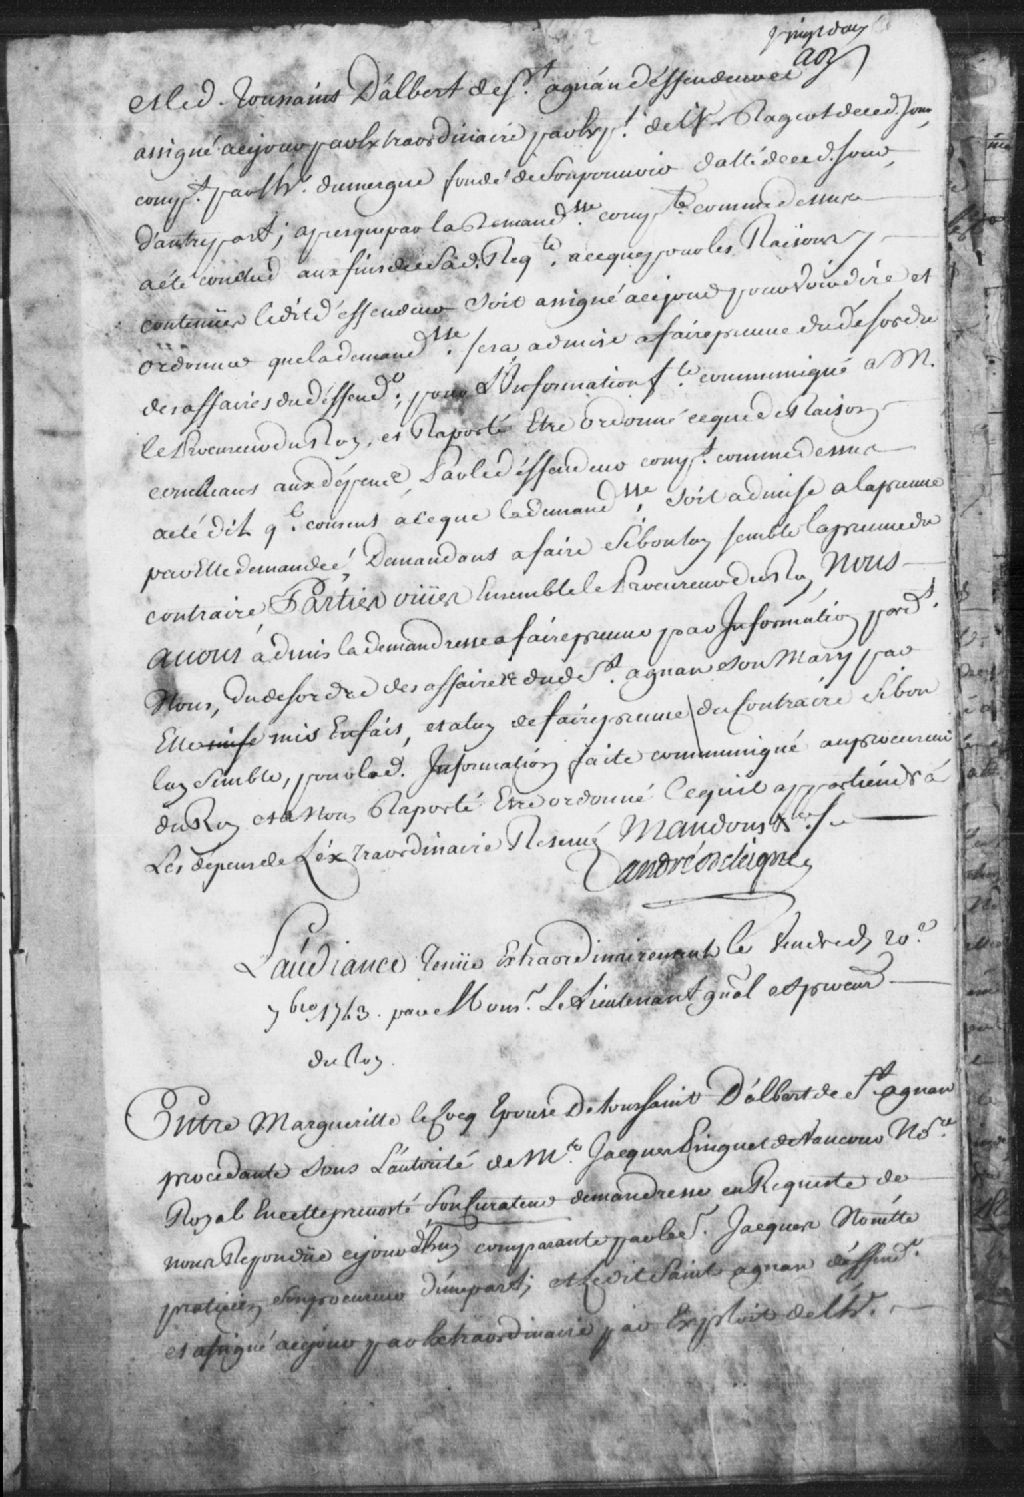 vingt deux
aoz
et led. Toussains D'albert de St. agnan déffendeur et
assigné a cejour par Extraordinaire par Expt. de Ragot de ced. jour
compt. par Mr. dumergue fondé de Son pouvoir datté de ced. jour
d'autre part; apresque par la Demandsse. compte. comme dessus
a été conclud aux fins de Sad. Reqte. a ceque pour les Raisons y
contenües ledit déffendeur Soit assigné a cejour pour Voir dire et
ordonner que la demandsse. sera admise a faire preuve du désordre
des affaires du déffendr. pour L'Information fte. communiqué a M.
le Procureur du Roy, et Raporté Etre ordonné ceque de Raison
concluans aux dépens, Par led déffendeur compt. comme dessus
a été dit ql. consent a ceque la demandsse. Soit admise a la preuve
par Elle demandée Demandant a faire Si bon luy semble la preuve du
contraire, Parties ouïes Ensemble le Procureur du Roy Nous
avons admis la demandresse a faire preuve par Information pardt.
Nous, du desordre des affaires dud St. agnan Son Mary par
Elle mis En fais, et a luy de faire preuve du Contraire Si bon
luy Semble, pour lad. Information faite communiqué au procureur
du Roy et a Nous Raporté Etre ordonné Cequil appartiendra
Les dépens de L'éxtraordinaire Reservés Mandons &c.
L'audiance Tenüe Extraordinairement le Vendredy 20e.
7bre 1743. par Monsr. Le Lieutenant gnal et procur
du Roy.
Entre Margueritte le Cocq Epouse De toussaint D'albert de St agnan
procédante Sous L'autorité de Mte. Jacques Pinguet de Vaucour Nore
Royal En cette prevosté Son Curateur demandresse en Requeste de
nous Repondüe cejourd'huy comparante par le Sr. Jacques Nouette
praticien Son procureur d'une part; et Ledit Saint agnan déffendr.
et assigné a cejour par Extraordinaire par Exploit de